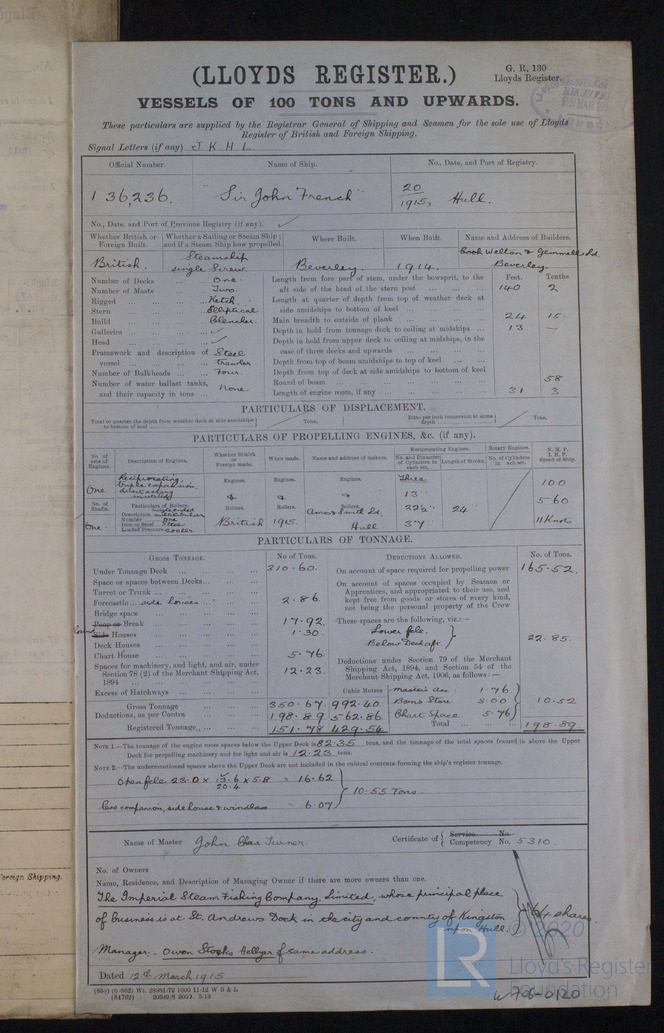 (LLOYDS REGISTER.)
G. R. 130
Lloyds Register.
VESSELS OF 100 TONS AND UPWARDS.
These particulars are supplied by the Registrar General of Shipping and Seamen for the sole use of Lloyds
Register of British and Foreign Shipping.
Signal Letters (if any) J K H L
Official Number. Name of Ship. No., Date, and Port of Registry.
136,236. "Sir John French" 20/1915, Hull.
No., Date, and Port of Previous Registry (if any).
Whether British or Foreign Built. Whether a Sailing or Steam Ship; and if a Steam Ship how propelled. Where Built. When Built. Name and Address of Builders.
British. Steamship single screw Beverley 1914 Cook Welton & Gemmell Ld. Beverley
Number of Decks One
Number of Masts Two
Rigged Ketch
Stern Elliptical
Build Clencher
Galleries
Head
Framework and description of vessel Steel trawler
Number of Bulkheads Four
Number of water ballast tanks, and their capacity in tons None
Feet. Tenths.
Length from fore part of stem, under the bowsprit, to the aft side of the head of the stern post 140 2
Length at quarter of depth from top of weather deck at side amidships to bottom of keel
Main breadth to outside of plank 24 15
Depth in hold from tonnage deck to ceiling at midships 13 —
Depth in hold from upper deck to ceiling at midships, in the case of three decks and upwards
Depth from top of beam amidships to top of keel
Depth from top of deck at side amidships to bottom of keel
Round of beam 58
Length of engine room, if any 31 3
PARTICULARS OF DISPLACEMENT.
Total to quarter the depth from weather deck at side amidships to bottom of keel Tons. Ditto per inch immersion at same depth Tons.
PARTICULARS OF PROPELLING ENGINES, &c. (if any).
No. of sets of Engines. Description of Engines. Whether British or Foreign made. When made. Name and address of makers. Reciprocating Engines. Rotary Engines. N. H. P. I. H. P. Speed of Ship.
No. and Diameter of Cylinders in each set. Length of Stroke. No. of Cylinders in each set.
One Reciprocating triple expansion direct acting inverted Engines. Engines. Engines. Three 100
13 560
No. of Shafts. Particulars of Boilers. Boilers. Boilers. Boilers. 22½ 24
One Description Number One Iron or Steel Steel Loaded Pressure British 1915 Amos & Smith Ld. Hull 37 11 Knots
PARTICULARS OF TONNAGE.
GROSS TONNAGE. No of Tons. DEDUCTIONS ALLOWED. No. of Tons.
Under Tonnage Deck 310.60
Space or spaces between Decks
Turret or Trunk
Forecastle side houses 2.86
Bridge space
Poop or Break 17.92
Side Houses 1.30
Deck Houses
Chart House 5.76
Spaces for machinery, and light, and air, under Section 78 (2) of the Merchant Shipping Act, 1894 12.23
Excess of Hatchways
Cubic Metres
Gross Tonnage 350.67 992.40
Deductions, as per Contra 198.89 562.86
Registered Tonnage 151.78 429.54
On account of space required for propelling power 165.52
On account of spaces occupied by Seamen or Apprentices, and appropriated to their use, and kept free from goods or stores of every kind, not being the personal property of the Crew
These spaces are the following, viz.:—
Lower fcle.
Below Deck aft. 22.85
Deductions under Section 79 of the Merchant Shipping Act, 1894, and Section 54 of the Merchant Shipping Act, 1906, as follows:—
Master's acc. 1.76
Bosns Store 3.00 10.52
Chart Space 5.76
Total 198.89
NOTE 1.—The tonnage of the engine room spaces below the Upper Deck is 82.35 tons, and the tonnage of the total spaces framed in above the Upper
Deck for propelling machinery and for light and air is 12.23 tons.
NOTE 2.—The undermentioned spaces above the Upper Deck are not included in the cubical contents forming the ship's register tonnage.
Open fcle 23.0 x x 5.8 = 16.62
20.4
10.55 Tons.
less companion, side house & windlass 6.07
Name of Master John Chas Turner. Certificate of { Service No. Competency No. 5310
No. of Owners
Name, Residence, and Description of Managing Owner if there are more owners than one.
The Imperial Steam Fishing Company, Limited, whose principal place
of business is at St. Andrews Dock in the city and county of Kingston
upon Hull. 64 shares.
Manager:- Owen Stooks Hellyer of same address.
Dated 12th March 1915
© 2020
LR
Lloyd's Register
Foundation
W706-0120
oreign Shipping.